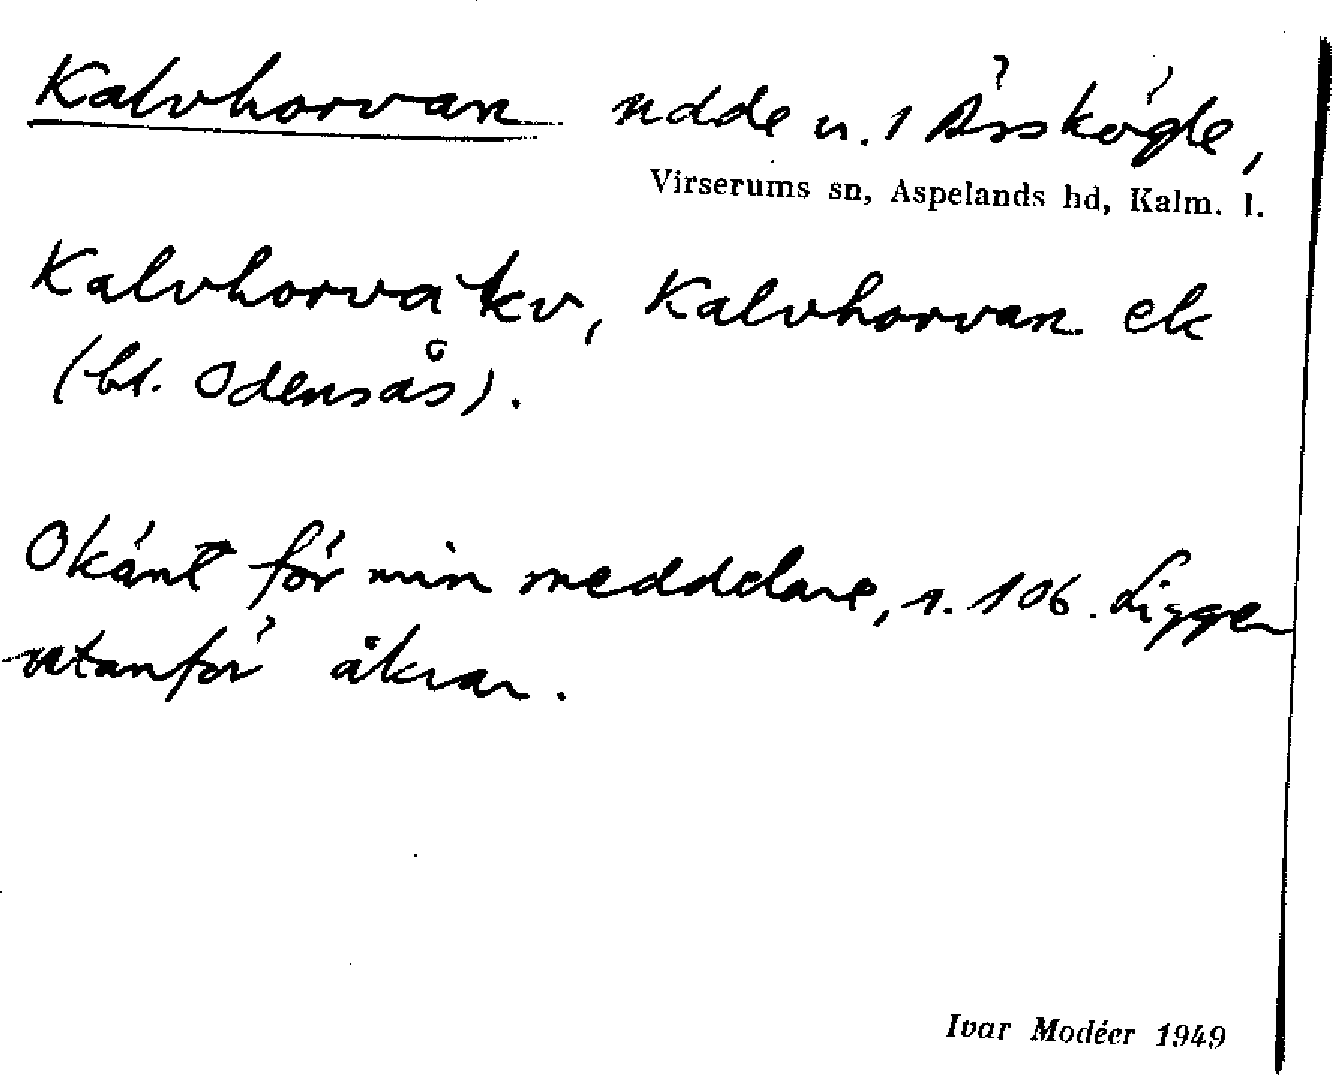 Kalvhorvan udde u. 1 Ässkögle,
Virserums sn, Aspelands hd, Kalm. l.
Kalvhorva kv, Kalvhorvan ek
(bl. Odensås).
Okänt för min meddelare, s. 106. Ligger
utanför åkrar.
Ivar Modéer 1949